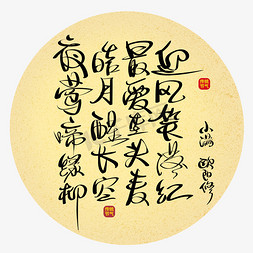 夜莺啼绿柳
皓月醒长空
最爱垄头麦
迎风笑落红
小满 欧阳修